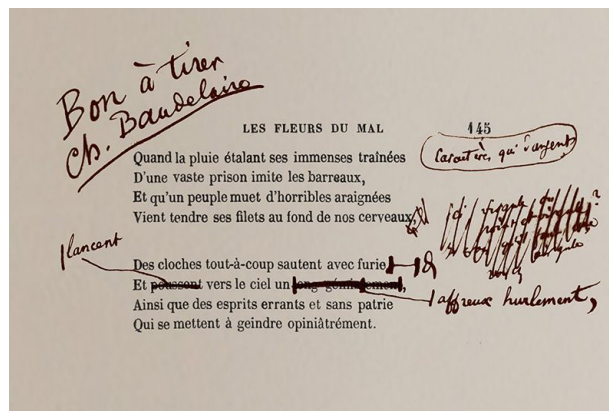 Bon à tirer
Ch. Baudelaire
LES FLEURS DU MAL 145
Caractère, qui
Quand la pluie étalant ses immenses traînées
D'une vaste prison imite les barreaux,
Et qu'un peuple muet d'horribles araignées
Vient tendre ses filets au fond de nos cerveaux,
lancent
Des cloches tout-à-coup sautent avec furie
Et poussent vers le ciel un long gémissement,
affreux hurlement,
Ainsi que des esprits errants et sans patrie
Qui se mettent à geindre opiniâtrément.